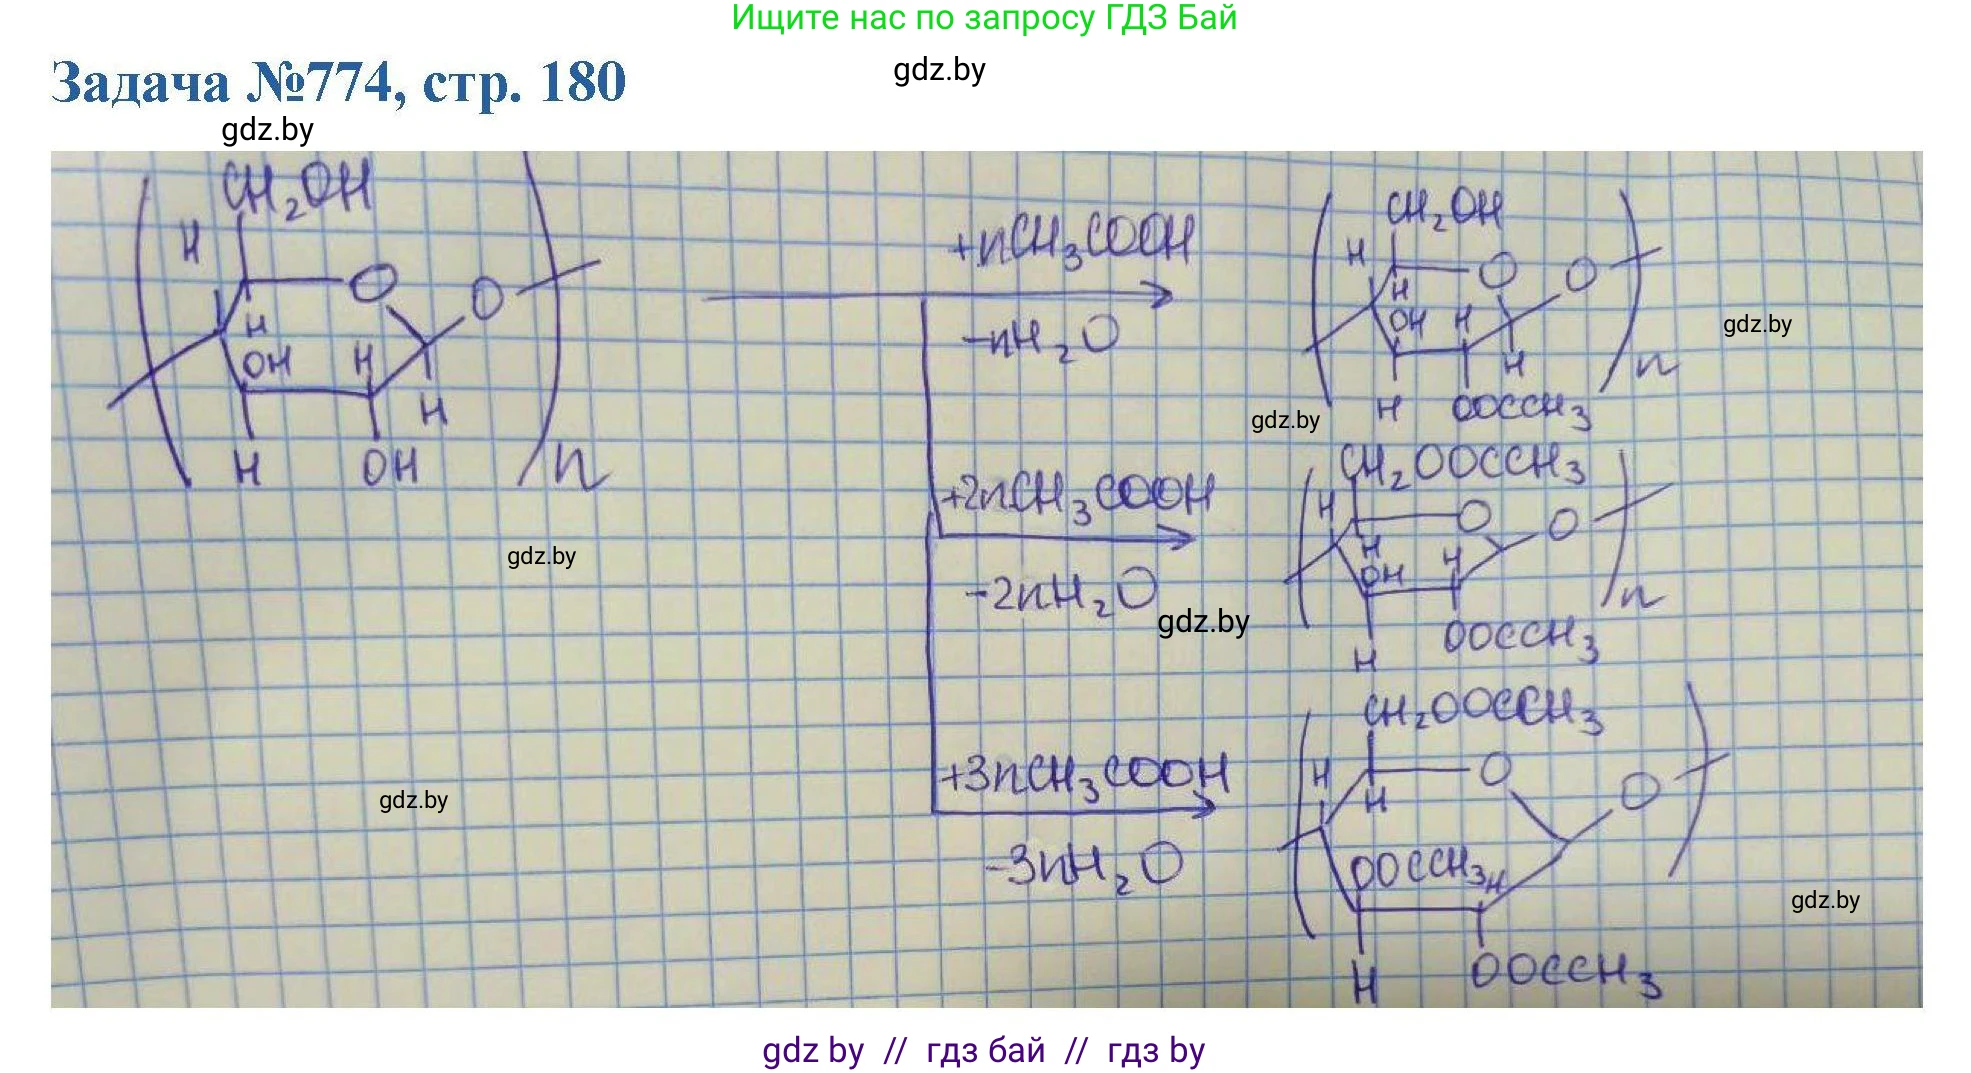 Ищите нас по запросу ГДЗ Бай
Задача №774, стр. 180
gdz.by
gdz.by
CH₂OH
H
O
O
H
OH
H
H
H
OH
n
+nCH₃COOH
-nH₂O
CH₂OH
H
O
O
H
OH
H
H
H
OOCCH₃
n
gdz.by
gdz.by
+2nCH₃COOH
-2nH₂O
CH₂OOCCH₃
H
O
O
H
OH
H
H
OOCCH₃
n
gdz.by
gdz.by
+3nCH₃COOH
-3nH₂O
CH₂OOCCH₃
H
O
O
H
OOCCH₃
H
H
OOCCH₃
gdz.by
gdz.by
gdz by // гдз бай // гдз by